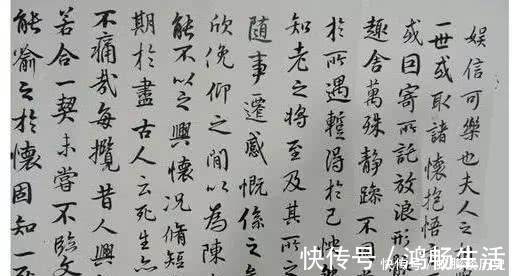 娱信可樂也夫人之
一世或取諸懷抱悟
或因寄所託放浪形
趣舍萬殊静躁不
於所遇得於己
知老之將至及其所之
隨事遷感慨係之
欣俛仰之間以為陳
能不以之興懷况脩短
期於盡古人云死生亦
不痛哉每攬昔人興
若合一契未嘗不臨文
能喻之於懷固知一
快传号／鸿畅生活